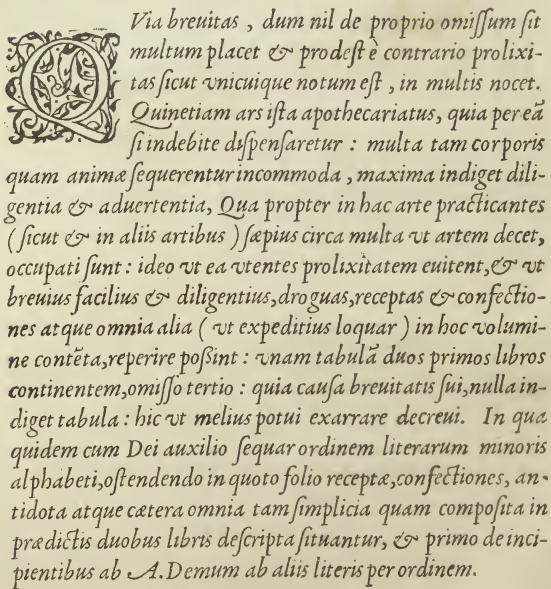 QVia breuitas , dum nil de proprio omiſſum ſit
multum placet & prodeſt è contrario prolixi-
tas ſicut vnicuique notum eſt , in multis nocet.
Quinetiam ars iſta apothecariatus, quia per eã
ſi indebite diſpenſaretur : multa tam corporis
quam animæ ſequerentur incommoda , maxima indiget dili-
gentia & aduertentia, Qua propter in hac arte practicantes
( ſicut & in aliis artibus ) ſæpius circa multa vt artem decet,
occupati ſunt : ideo vt ea vtentes prolixitatem euitent, & vt
breuius facilius & diligentius, droguas, receptas & confectio-
nes atque omnia alia ( vt expeditius loquar ) in hoc volumi-
ne contẽta, reperire poßint : vnam tabulã duos primos libros
continentem, omiſſo tertio : quia cauſa breuitatis ſui, nulla in-
diget tabula : hic vt melius potui exarrare decreui. In qua
quidem cum Dei auxilio ſequar ordinem literarum minoris
alphabeti, oſtendendo in quoto folio receptæ, confectiones, an-
tidota atque cætera omnia tam ſimplicia quam compoſita in
prædictis duobus libris deſcripta ſituantur, & primo de inci-
pientibus ab A. Demum ab aliis literis per ordinem.